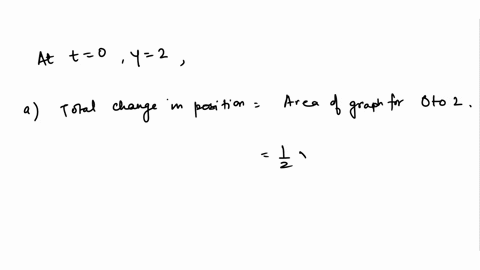 At t=0, y=2,
a) Total change in position = Area of graph for 0 to 2.
= 1/2